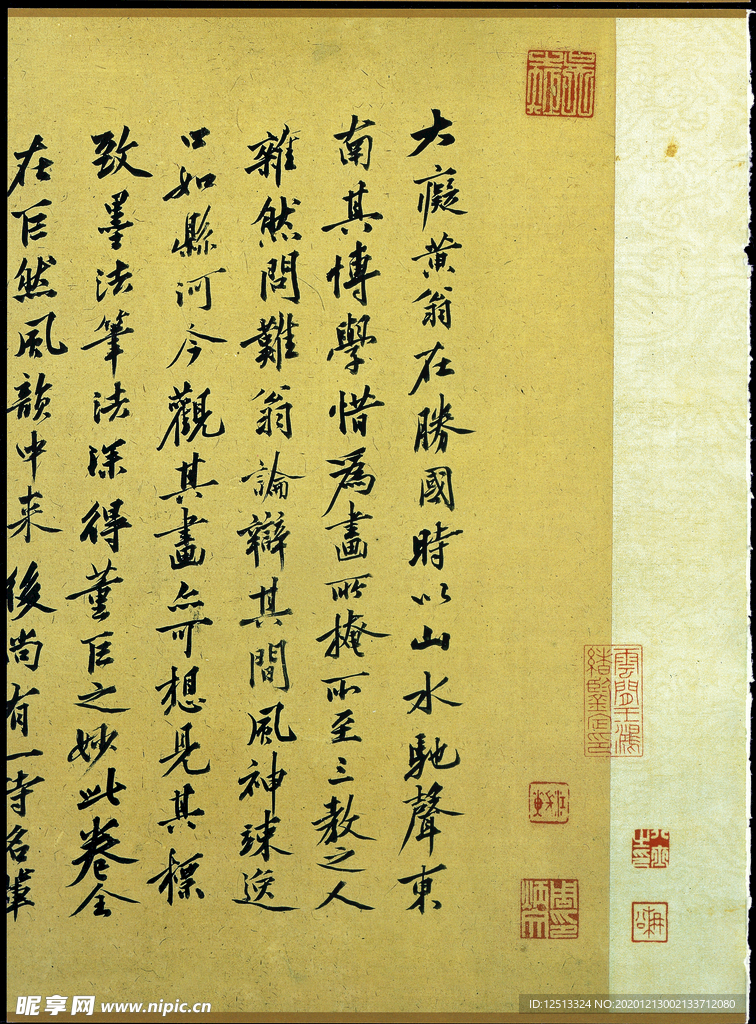 大癡黄翁在勝國時以山水馳聲東
南其博學惜爲畫所掩所至三教之人
雜然問難翁論辯其間風神竦逸
口如縣河今觀其畫亦可想見其標
致墨法筆法深得董巨之妙此卷全
在巨然風韻中来後尚有一時名輩
雲間王鴻
緒鑒定印
昵享网 www.nipic.cn
ID:12513324 NO:20201213002133712080